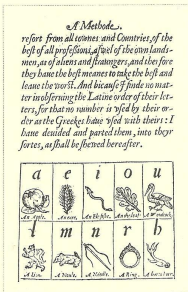 A Methode.
resort from all townes and Countries, of the
best of all professions, aswel of the own lands-
men, as of aliens and straungers, and therfore
they haue the best meanes to take the best and
leaue the worst. And bicause I finde no mat-
ter in obseruing the Latine order of their let-
ters, for that no number is vsed by their or-
der as the Greekes haue vsed with theirs: I
haue deuided and parted them, into theyr
sortes, as shall be shewed hereafter.
a e i o u
An Apple. An eye. An
l m n r h
A Lion. A A A Ring. A